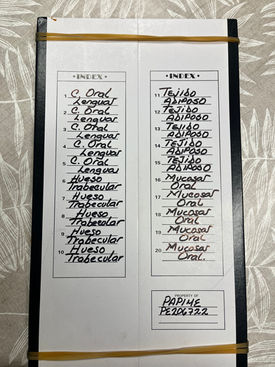 • INDEX •
1 C. Oral
Lenguas
2 C. Oral
Lenguas
3 C. Oral
Lenguas
4 C. Oral
Lenguas
5 C. Oral
Lenguas
6 Hueso
Trabecular
7 Hueso
Trabecular
8 Hueso
Trabecular
9 Hueso
Trabecular
10 Hueso
Trabecular
• INDEX •
11 TEJIDO
ADIPOSO
12 TEJIDO
ADIPOSO
13 TEJIDO
ADIPOSO
14 TEJIDO
ADIPOSO
15 TEJIDO
ADIPOSO
16 Mucosas
Oral
17 Mucosas
Oral
18 Mucosas
Oral
19 Mucosas
Oral
20 Mucosas
Oral.
PROPERTY OF
PAPIME
PE206722